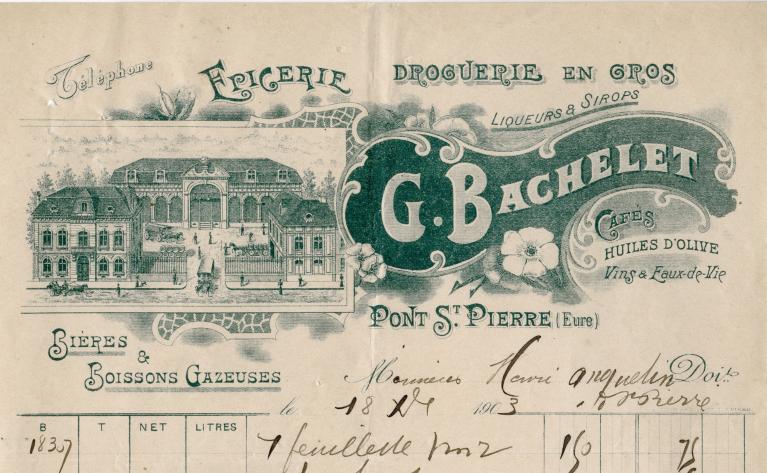 Téléphone
EPICERIE DROGUERIE EN GROS
LIQUEURS & SIROPS
G. BACHELET
CAFÉS
HUILES D'OLIVE
Vins & Eaux-de-Vie
PONT ST PIERRE (Eure)
BIÈRES
&
BOISSONS GAZEUSES
Monsieur Henri Doit
le 18 1903
B T NET LITRES
150 75